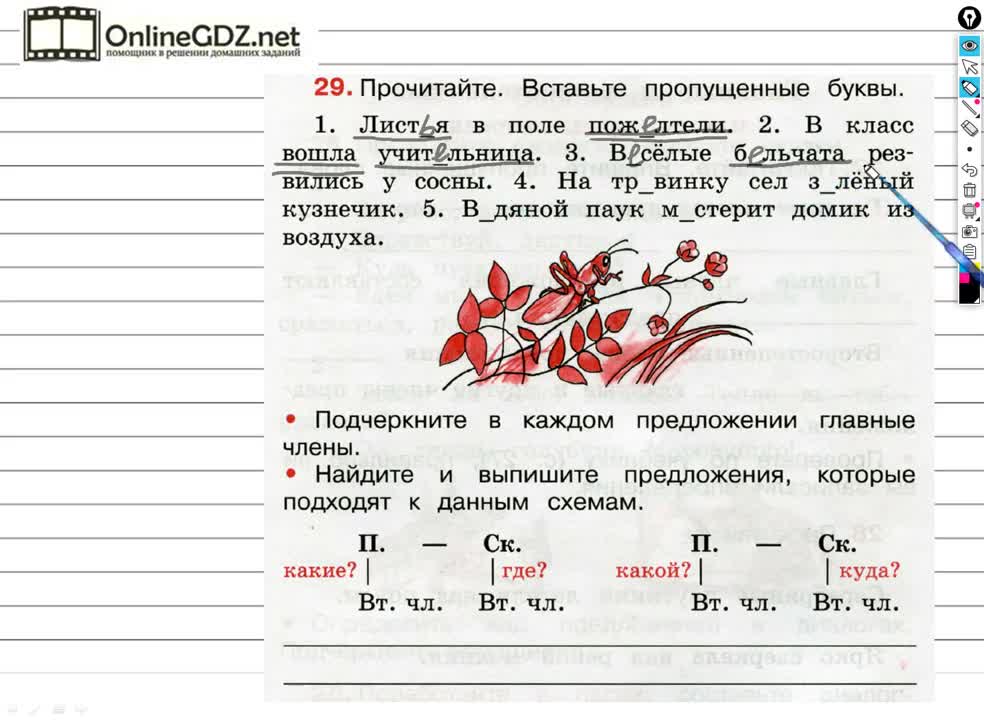 OnlineGDZ.net
помощник в решении домашних заданий
29. Прочитайте. Вставьте пропущенные буквы.
1. Листья в поле пожелтели. 2. В класс
вошла учительница. 3. Весёлые бельчата рез-
вились у сосны. 4. На тр_винку сел з_лёный
кузнечик. 5. В_дяной паук м_стерит домик из
воздуха.
• Подчеркните в каждом предложении главные
члены.
• Найдите и выпишите предложения, которые
подходят к данным схемам.
П. — Ск. П. — Ск.
какие? где? какой? куда?
Вт. чл. Вт. чл. Вт. чл. Вт. чл.